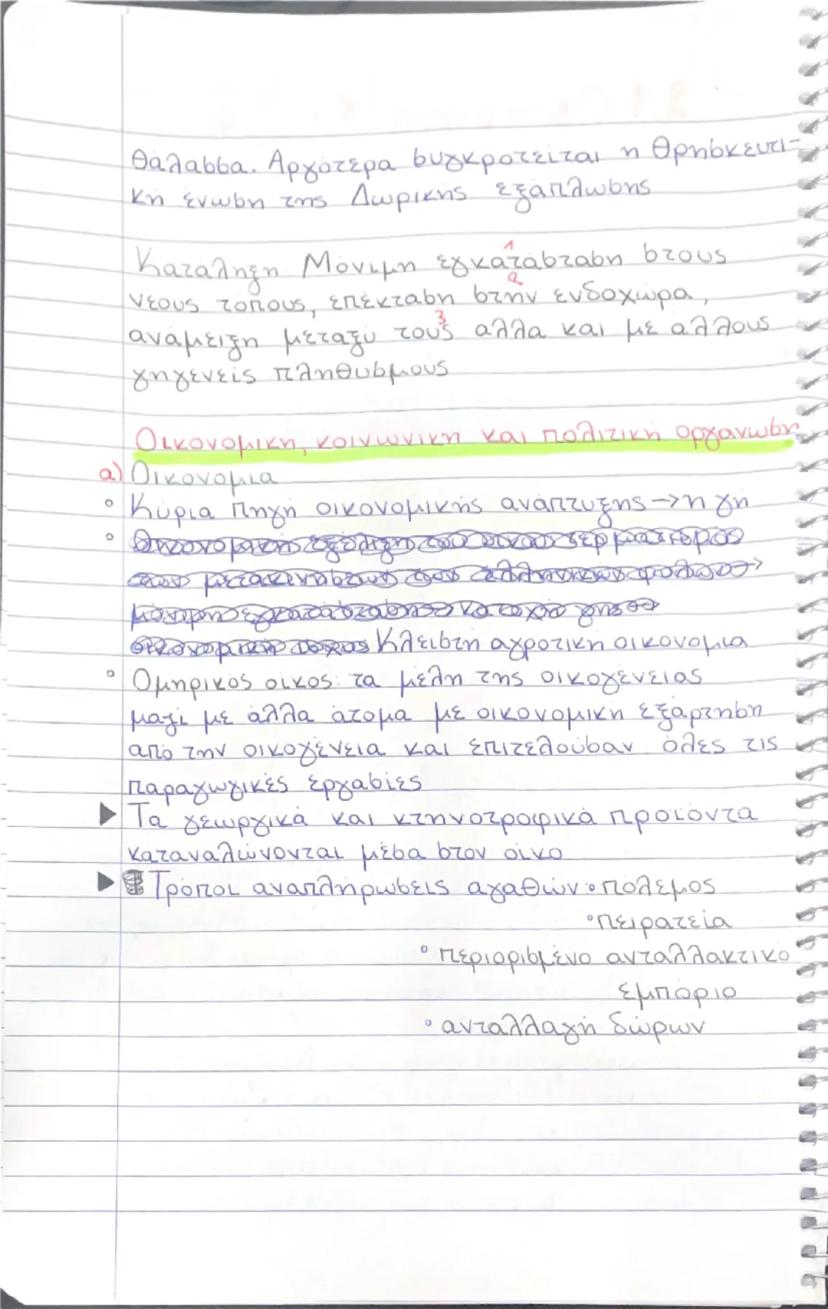 θάλασσα. Αργότερα συγκροτείται η θρησκευτι-
κή ένωση της Δωρικής εξάπλωσης
Κατάληξη Μόνιμη εγκατάσταση στους
1
2
νέους τόπους, επέκταση στην ενδοχώρα,
3
ανάμειξη μεταξύ τους αλλα και με αλλους
γηγενείς πληθυσμους
Οικονομικη, κοινωνικη και πολιτικη οργανωση
α) Οικονομια
° Κύρια πηγή οικονομικής ανάπτυξης → η γη
°
Κλειστη αγροτική οικονομια
° Ομηρικος οικος: τα μέλη της οικογένειας
μαζί με άλλα άτομα με οικονομική εξάρτηση
από την οικογένεια και επιτελούσαν όλες τις
παραγωγικές εργασίες
▶ Τα γεωργικά και κτηνοτροφικά προιόντα
καταναλώνονται μέσα στον οίκο
▶ Τρόποι αναπλήρωσεις αγαθών ° πόλεμος
° πειρατεία
° περιορισμένο ανταλλακτικό
εμπόριο
° ανταλλαγή δώρων